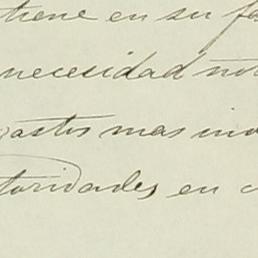 tiene en su fa
necesidad not
gastos mas ind
toridades en c